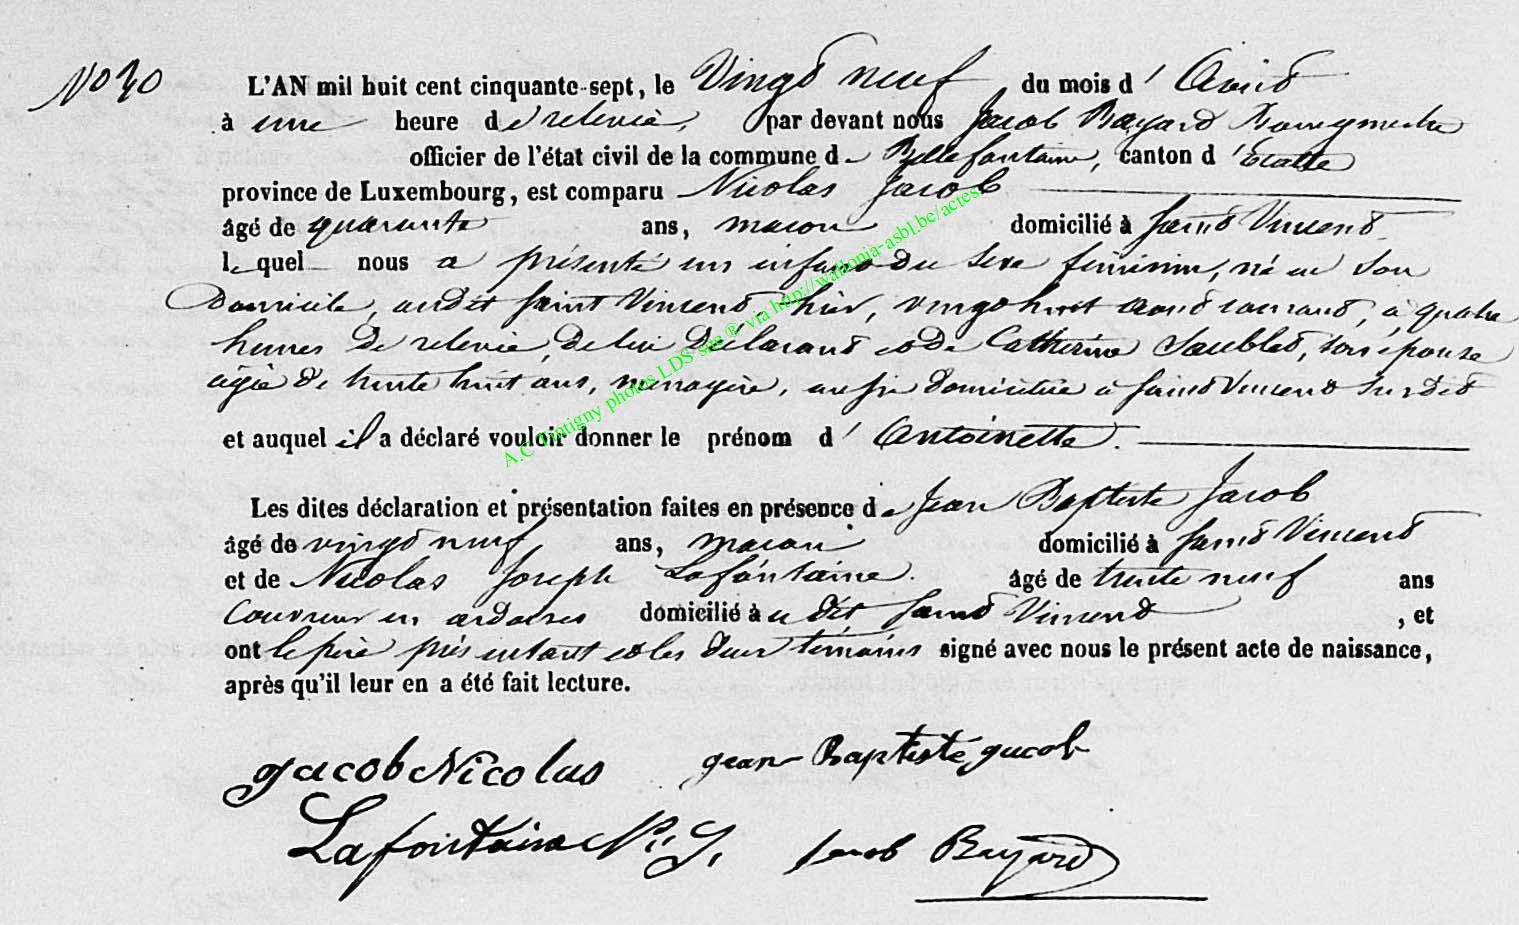 No 30
L'AN mil huit cent cinquante-sept, le Vingt neuf du mois d' Avril
à une heure de relevée, par devant nous Jacob Bayard Bourgmestre
officier de l'état civil de la commune de Bellefontaine, canton d' Etalle
province de Luxembourg, est comparu Nicolas Jacob
âgé de quarante ans, macon domicilié à Saint Vincent
lequel nous a présenté un enfant du sexe féminin, né en son
domicile, audit Saint Vincent, hier, vingt huit avril courant, à quatre
heures de relevée, de lui déclarant et de Catherine Saublet, son épouse
agée de trente huit ans, ménagère, aussi domiciliée à Saint Vincent susdit
et auquel il a déclaré vouloir donner le prénom d' Antoinette.
Les dites déclaration et présentation faites en présence de Jean Baptiste Jacob
âgé de vingt neuf ans, macon domicilié à Saint Vincent
et de Nicolas Joseph Lafontaine. âgé de trente neuf ans
couvreur en ardoises domicilié àu dit Saint Vincent, et
ont le père présentant et les deux témoins signé avec nous le présent acte de naissance,
après qu'il leur en a été fait lecture.
Jacob Nicolas Jean Baptiste Jacob
Lafontaine N. J. Jacob Bayard
A.C Tintigny photos LDS site® via http://wallonia-asbl.be/actes